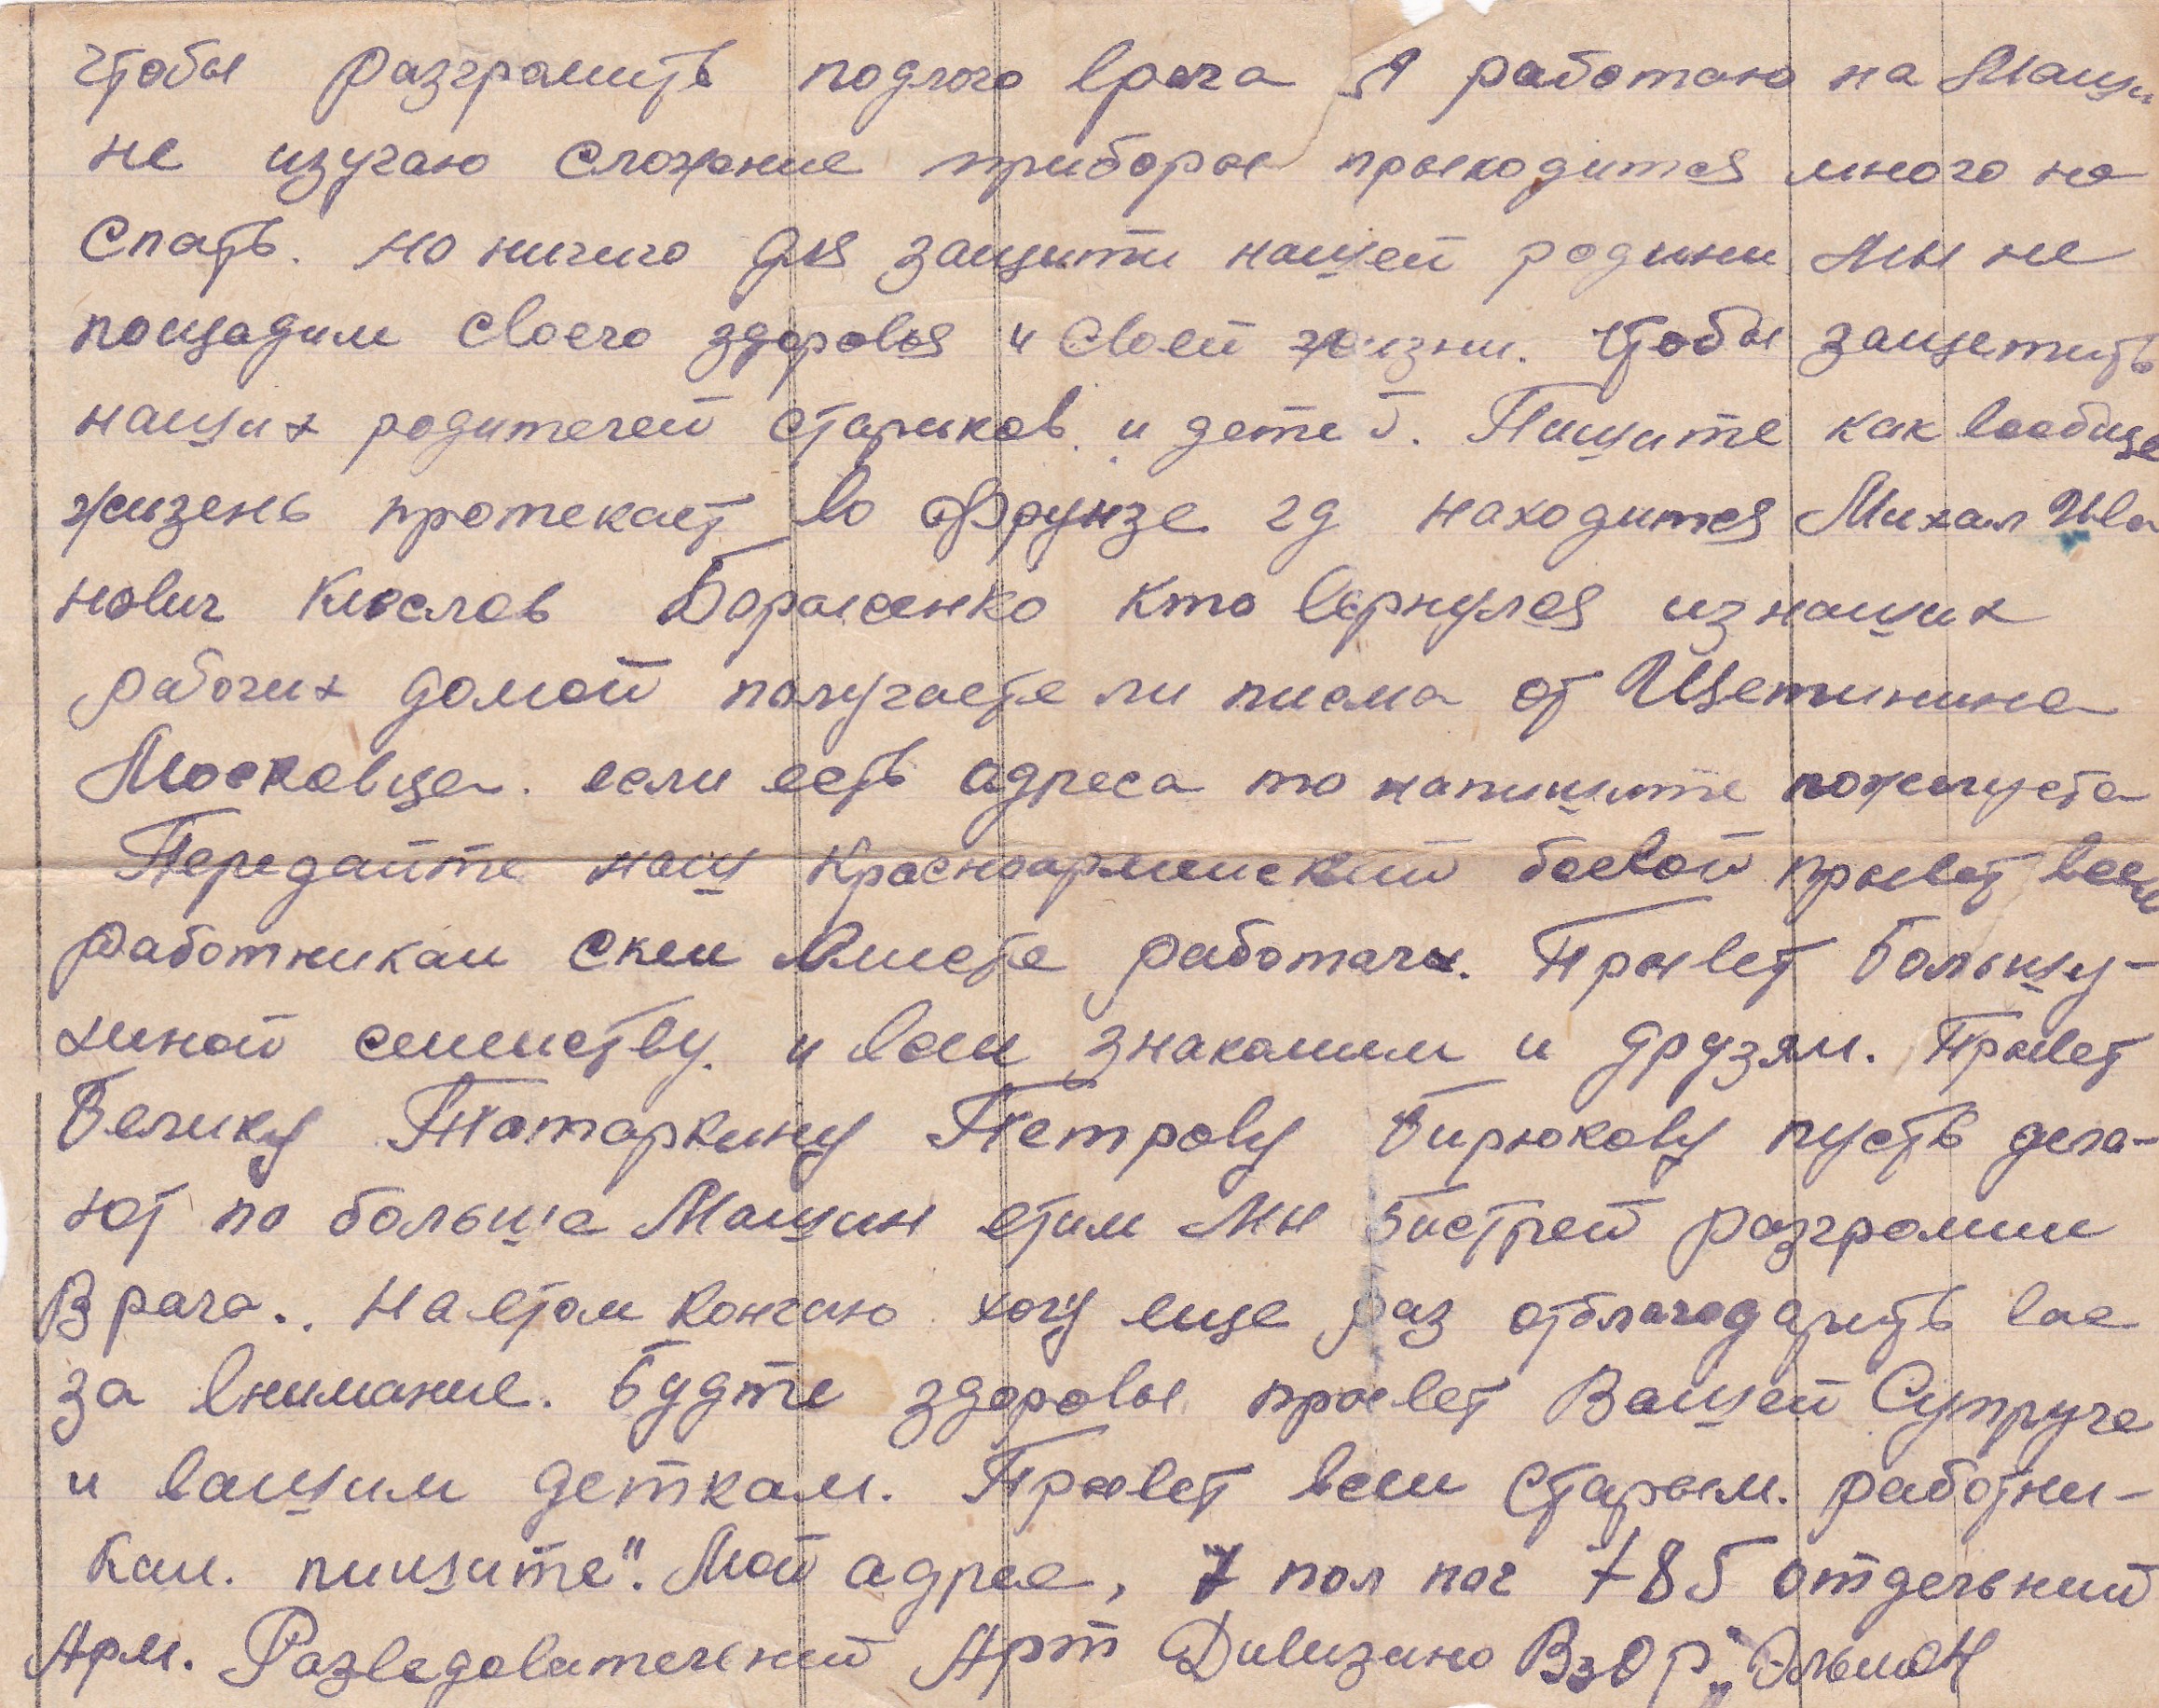 чтобы разгромить подлого врага Я работаю на Маши
не изучаю сложние приборы прыходится много не
спать. но ничиго для защити нашей родини Мы не
пощадим своего здоровья и своей жизни. чтобы защетить
наших родителей стариков и детей. Пишите как вообще
жизень протекает во Фрунзе гд находится Михал Ива
нович Кислов Борысенко кто вернулся из наших
рабочих домой получаете ли писма от Щетинина
Московца. если есть адреса то напишите пожелуста
Передайте наш красноармиский боевой прывет всем
работникам скем вмисте работали. Прывет Большу-
хиной семиству. и всем знакомим и друзям. Прывет
Белику Татаркину Петрову Бирюкову пусть дела-
ют по больше Машин етим Мы бистрей разгромим
Врага.. На етом кончаю хочу еще раз отблагодарить вас
за внимание. Будте здоровы прывет Вашей Супруге
и вашим деткам. Прывет всем старым. работни-
кам. пишите". Мой адрес, 7 пол поч 785 отдельний
Арм. Разведовательний Арт Дивизино ВзОр